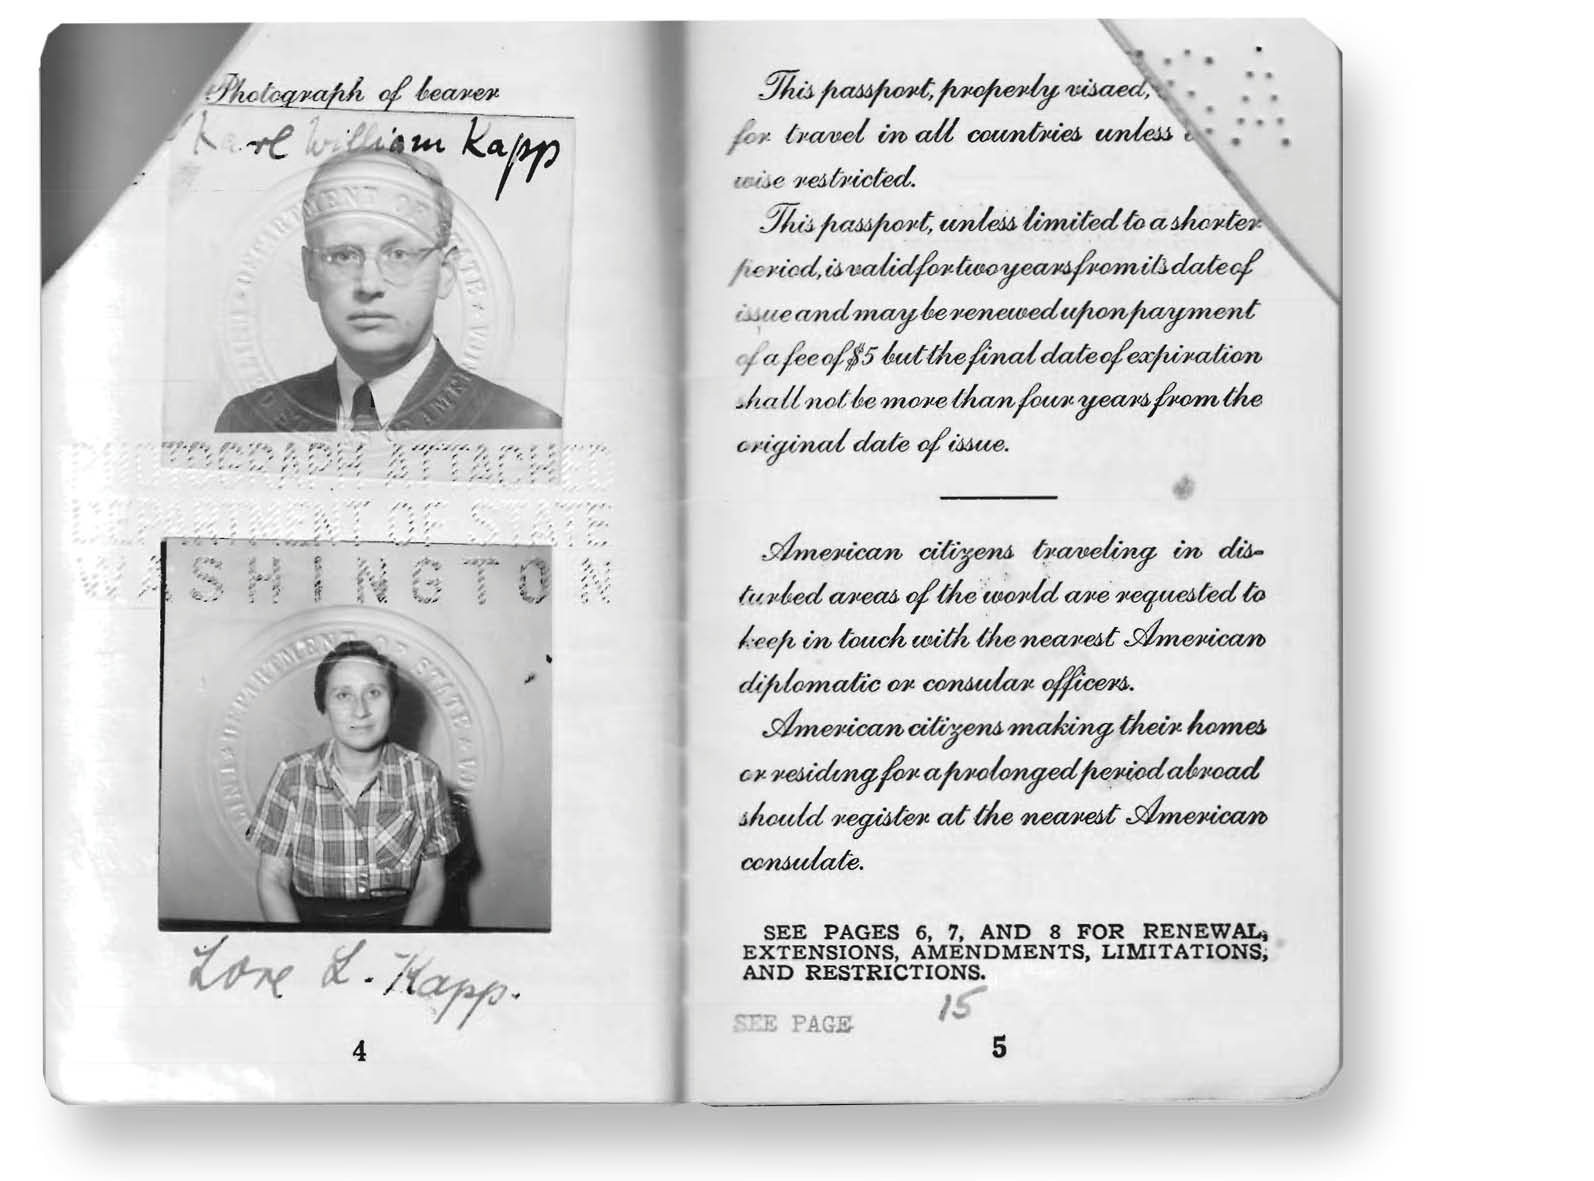 Photograph of bearer
Karl William Kapp
DEPARTMENT OF STATE
PHOTOGRAPH ATTACHED
DEPARTMENT OF STATE
WASHINGTON
DEPARTMENT OF STATE
Lore L. Kapp.
4
This passport, properly visaed,
for travel in all countries unless
wise restricted.
This passport, unless limited to a shorter
period, is valid for two years from its date of
issue and may be renewed upon payment
of a fee of $5 but the final date of expiration
shall not be more than four years from the
original date of issue.
American citizens traveling in dis-
turbed areas of the world are requested to
keep in touch with the nearest American
diplomatic or consular officers.
American citizens making their homes
or residing for a prolonged period abroad
should register at the nearest American
consulate.
SEE PAGES 6, 7, AND 8 FOR RENEWAL,
EXTENSIONS, AMENDMENTS, LIMITATIONS,
AND RESTRICTIONS.
SEE PAGE 15
5